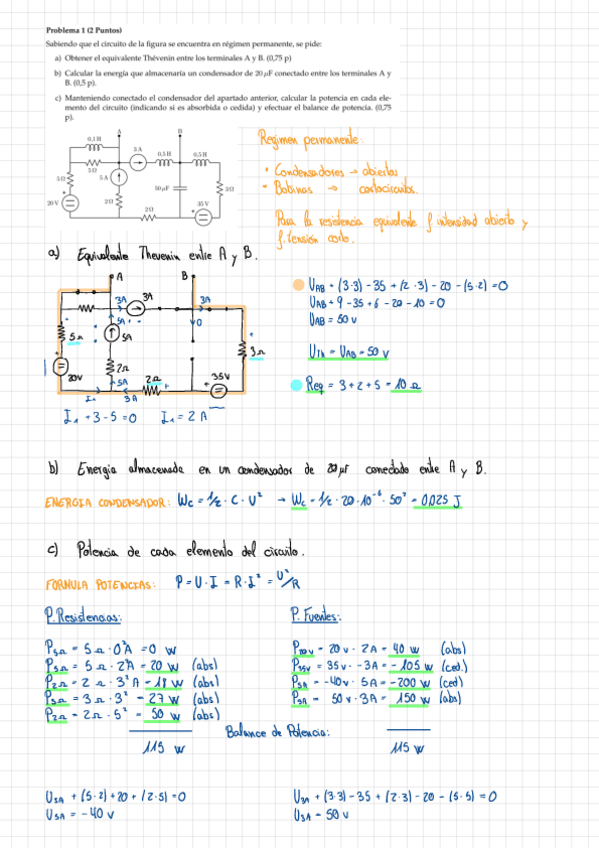 Problema 1 (2 Puntos)
Sabiendo que el circuito de la figura se encuentra en régimen permanente, se pide:
a) Obtener el equivalente Thévenin entre los terminales A y B. (0,75 p)
b) Calcular la energía que almacenaría un condensador de 20 μF conectado entre los terminales A y
B. (0,5 p).
c) Manteniendo conectado el condensador del apartado anterior, calcular la potencia en cada ele-
mento del circuito (indicando si es absorbida o cedida) y efectuar el balance de potencia. (0,75
p).
A B
0,1 H 3 A 0,5 H 0,5 H
5Ω 5 A 50 μF 3Ω
20 V 2Ω 2Ω 35 V
Regimen permanente:
• Condensadores → abiertos
• Bobinas → cortocircuitos.
Para la resistencia equivalente f intensidad abierto y
f. tensión corto.
a) Equivalente Thevenin entre A y B.
A B
3A 3A 3A
5A 0
5Ω 5A 3Ω
2Ω
20V 5A 2Ω 35V
I₁ 3A
I₁ + 3 - 5 = 0 I₁ = 2 A
UAB + (3·3) - 35 + (2·3) - 20 - (5·2) = 0
UAB + 9 - 35 + 6 - 20 - 10 = 0
UAB = 50 v
UTh = UAB = 50 v
Req = 3 + 2 + 5 = 10 Ω
b) Energia almacenada en un condensador de 20 μF conectado entre A y B.
ENERGIA CONDENSADOR: Wc = 1/2 · C · U² → Wc = 1/2 · 20 · 10⁻⁶ · 50² = 0,025 J
c) Potencia de cada elemento del circuito.
FORMULA POTENCIAS: P = U · I = R · I² = U²/R
P. Resistencias: P. Fuentes:
P5Ω = 5Ω · 0²A = 0 w
P5Ω = 5Ω · 2²A = 20 w (abs)
P2Ω = 2Ω · 3² A = 18 w (abs)
P3Ω = 3Ω · 3² = 27 w (abs)
P2Ω = 2Ω · 5² = 50 w (abs)
115 w
P20v = 20 v · 2A = 40 w (abs)
P35v = 35 v · -3A = -105 w (ced)
P5A = -40v · 5A = -200 w (ced)
P3A = 50 v · 3A = 150 w (abs)
Balance de Potencia:
115 w
U5A + (5·2) + 20 + (2·5) = 0
U5A = -40 v
U3A + (3·3) - 35 + (2·3) - 20 - (5·5) = 0
U3A = 50 v